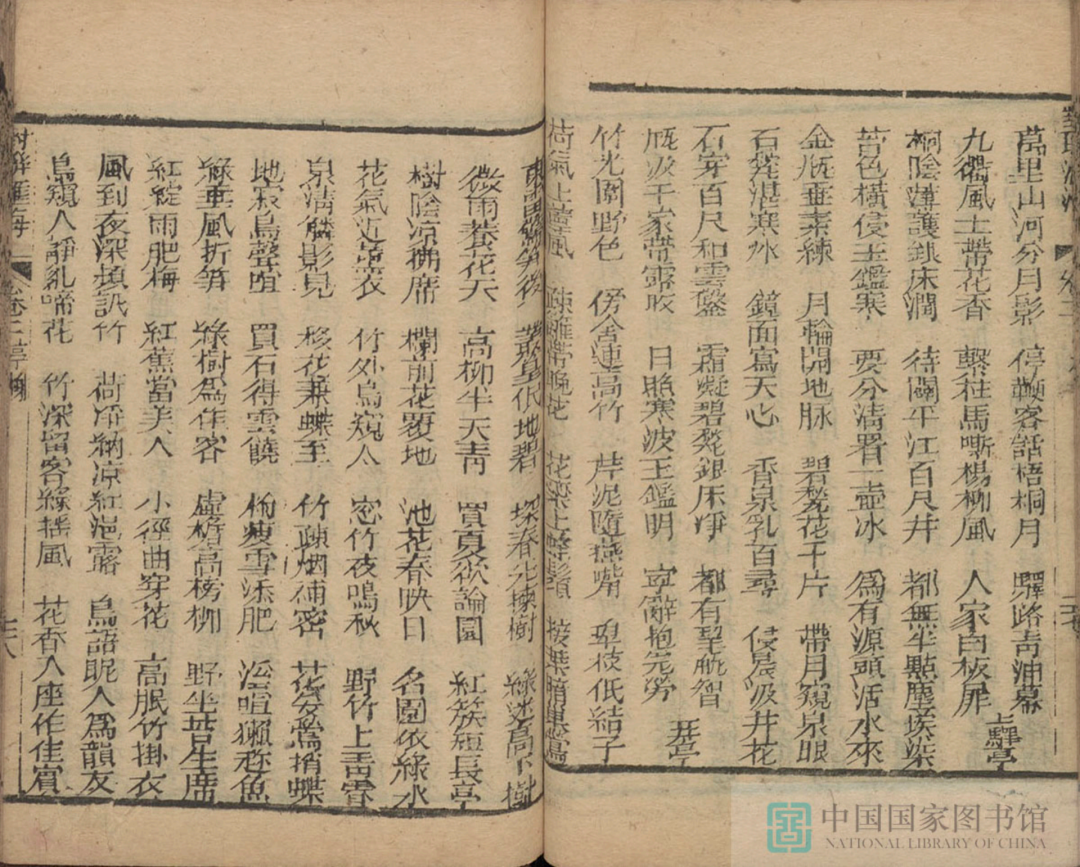 萬里山河分月影 停鞭客話梧桐月 驛路青油幕
九衢風土帶花香 繫柱馬嘶楊柳風 人家白板扉 上驛亭
桐陰薄護銀床潤 待闢平江百尺井 都無半點塵埃染
苔色橫侵玉鑑寒 要分清署一壺冰 為有源頭活水來
金瓶垂素練 月輪開地脉 碧甃花千片 帶月窺泉眼
石甃湛寒冰 鏡面寫天心 香泉乳百尋 侵晨汲井花
石穿百尺和雲鑿 霜凝碧甃銀床凈 都有翠瓶智
厎汲千家帶露收 日照寒波玉鑑明 寧辭抱瓮勞 井亭
竹光圍野色 傍舍連高竹 芹泥隨燕嘴 卑枝低結子
荷氣上薰風 疎籬帶晚花 花蘂上蜂鬚 接葉暗巢鶯
叢篁低地碧 探春光棟樹 綠迷高下樹
微雨養花天 高柳半天青 買夏欲論園 紅簇短長亭
樹陰凉拂席 欄前花覆地 池花春映日 名園依綠水
花氣近薰衣 竹外鳥窺人 窓竹夜鳴秋 野竹上青霄
泉清鱗影見 移花兼蝶至 竹疎烟補密 花妥鶯捎蝶
地寂鳥聲喧 買石得雲饒 梅瘦雪添肥 溪喧獺趁魚
綠垂風折笋 綠樹為佳客 虛檐高榜柳 野坐苔生席
紅綻雨肥梅 紅蕉當美人 小徑曲穿花 高眠竹掛衣
風到夜深頻訊竹 荷凈納凉紅浥露 鳥語眤人為韻友
鳥窺人靜亂啼花 竹深留客綠搖風 花香入座作佳賓
卷二亭 二十八
中国国家图书馆
NATIONAL LIBRARY OF CHINA